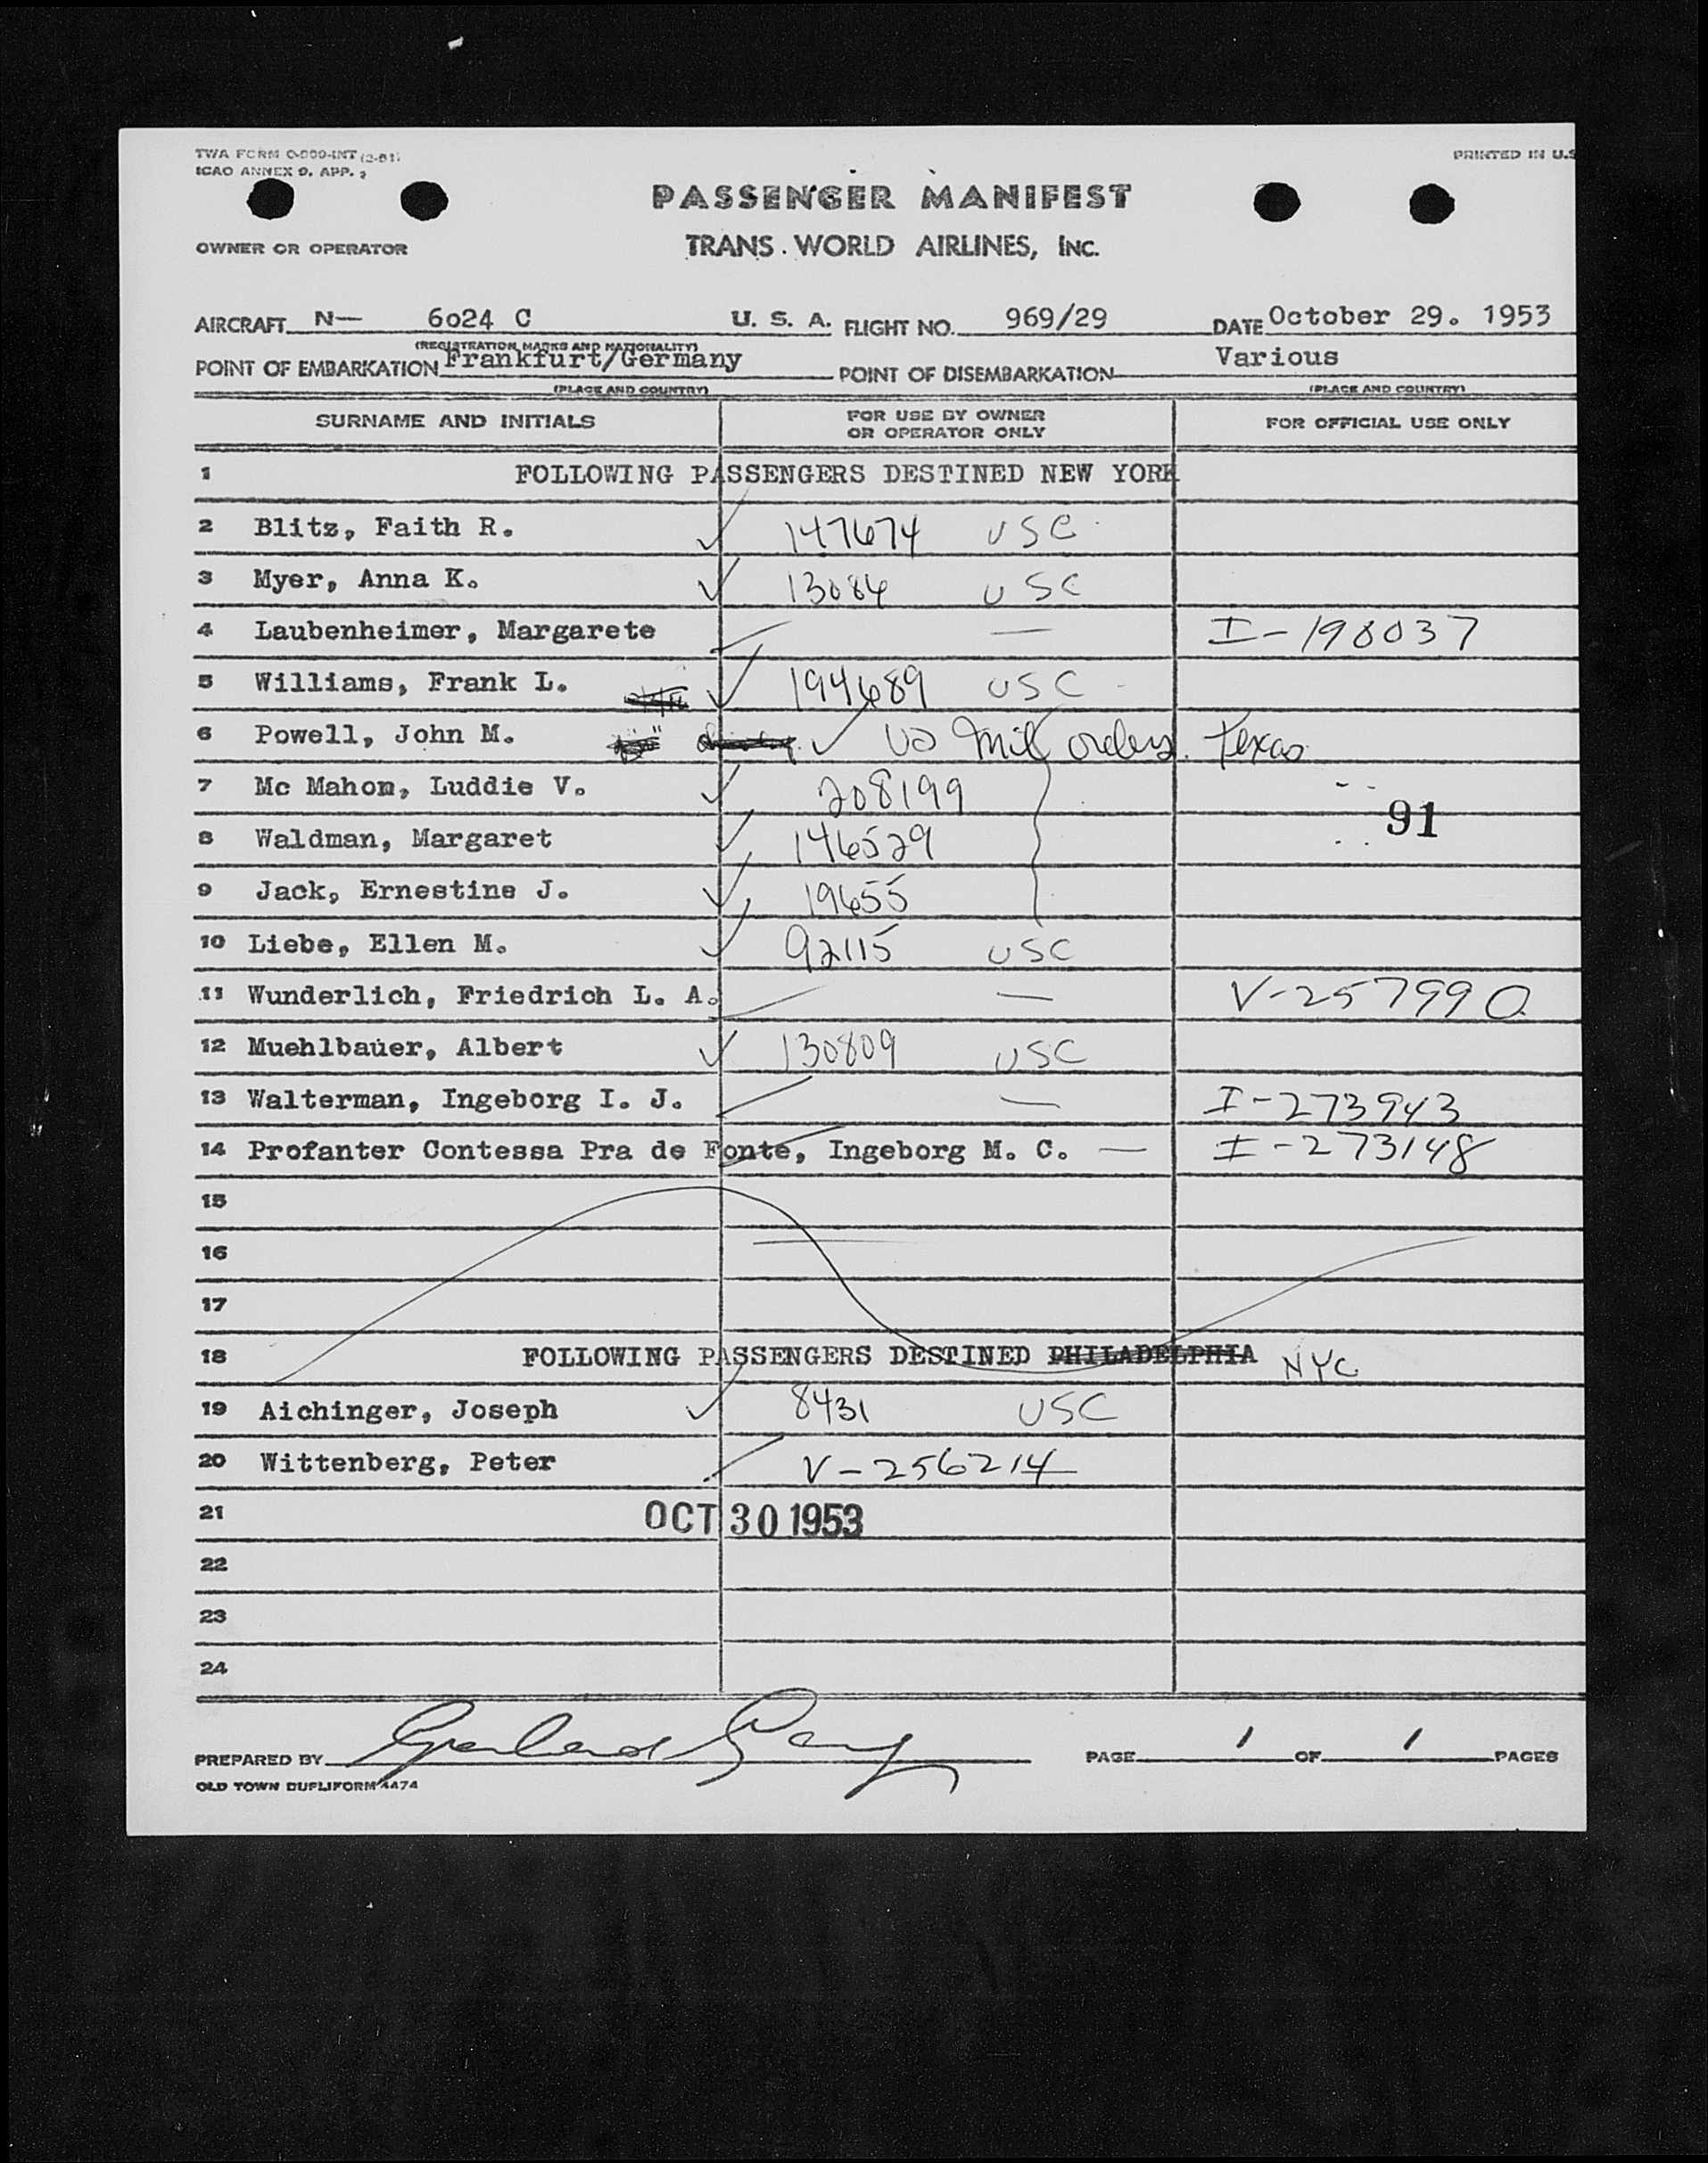 TWA FORM O-209-INT (2-51)
PRINTED IN U.S
ICAO ANNEX 9, APP. 2
PASSENGER MANIFEST
OWNER OR OPERATOR TRANS. WORLD AIRLINES, INC.
AIRCRAFT N— 6o24 C U. S. A. FLIGHT NO. 969/29 DATE October 29. 1953
(REGISTRATION MARKS AND NATIONALITY)
POINT OF EMBARKATION Frankfurt/Germany POINT OF DISEMBARKATION Various
(PLACE AND COUNTRY) (PLACE AND COUNTRY)
SURNAME AND INITIALS FOR USE BY OWNER OR OPERATOR ONLY FOR OFFICIAL USE ONLY
1 FOLLOWING PASSENGERS DESTINED NEW YORK
2 Blitz, Faith R. ✓ 147674 USC
3 Myer, Anna K. ✓ 13084 USC
4 Laubenheimer, Margarete — I-198037
5 Williams, Frank L. ✓ 194689 USC
6 Powell, John M. ✓ US Mil orders. Texas
7 Mc Mahon, Luddie V. ✓ 208199
91
8 Waldman, Margaret ✓ 146529
9 Jack, Ernestine J. ✓ 19655
10 Liebe, Ellen M. ✓ 92115 USC
11 Wunderlich, Friedrich L. A. — V-257990
12 Muehlbauer, Albert ✓ 130809 USC
13 Walterman, Ingeborg I. J. — I-273943
14 Profanter Contessa Pra de Fonte, Ingeborg M. C. — I-273148
15
16
17
18 FOLLOWING PASSENGERS DESTINED PHILADELPHIA NYC
19 Aichinger, Joseph ✓ 8431 USC
20 Wittenberg, Peter V-256214
21 OCT 30 1953
22
23
24
PREPARED BY PAGE 1 OF 1 PAGES
OLD TOWN DUPLIFORM 4474